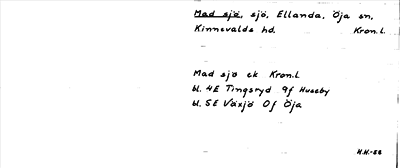 Mad sjö, sjö, Ellanda, Öja sn,
Kinnevalds hd. Kron.l.
Mad sjö ek Kron.l
bl. 4E Tingsryd 9f Huseby
bl. 5E Växjö 0f Öja
H.H.-58